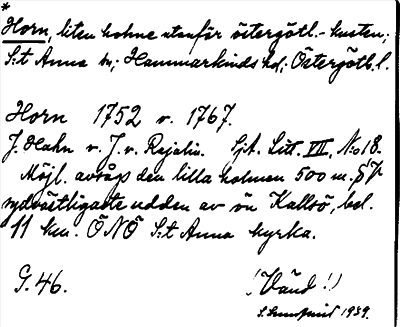 *
Horn, liten holme utanför östergötl.-kusten;
S:t Anna sn; Hammarkinds hd; Östergötl. l.
Horn 1752 v. 1767.
J. Hahn v. J. v. Rajalin. Sjk. Litt. VII, N:o 18.
Möjl. avsågs den lilla holmen 500 m. SV
sydvästligaste udden av ön Kallsö, bel.
11 km. ÖNÖ S:t Anna kyrka.
G. 46. (Vänd!)
1939.